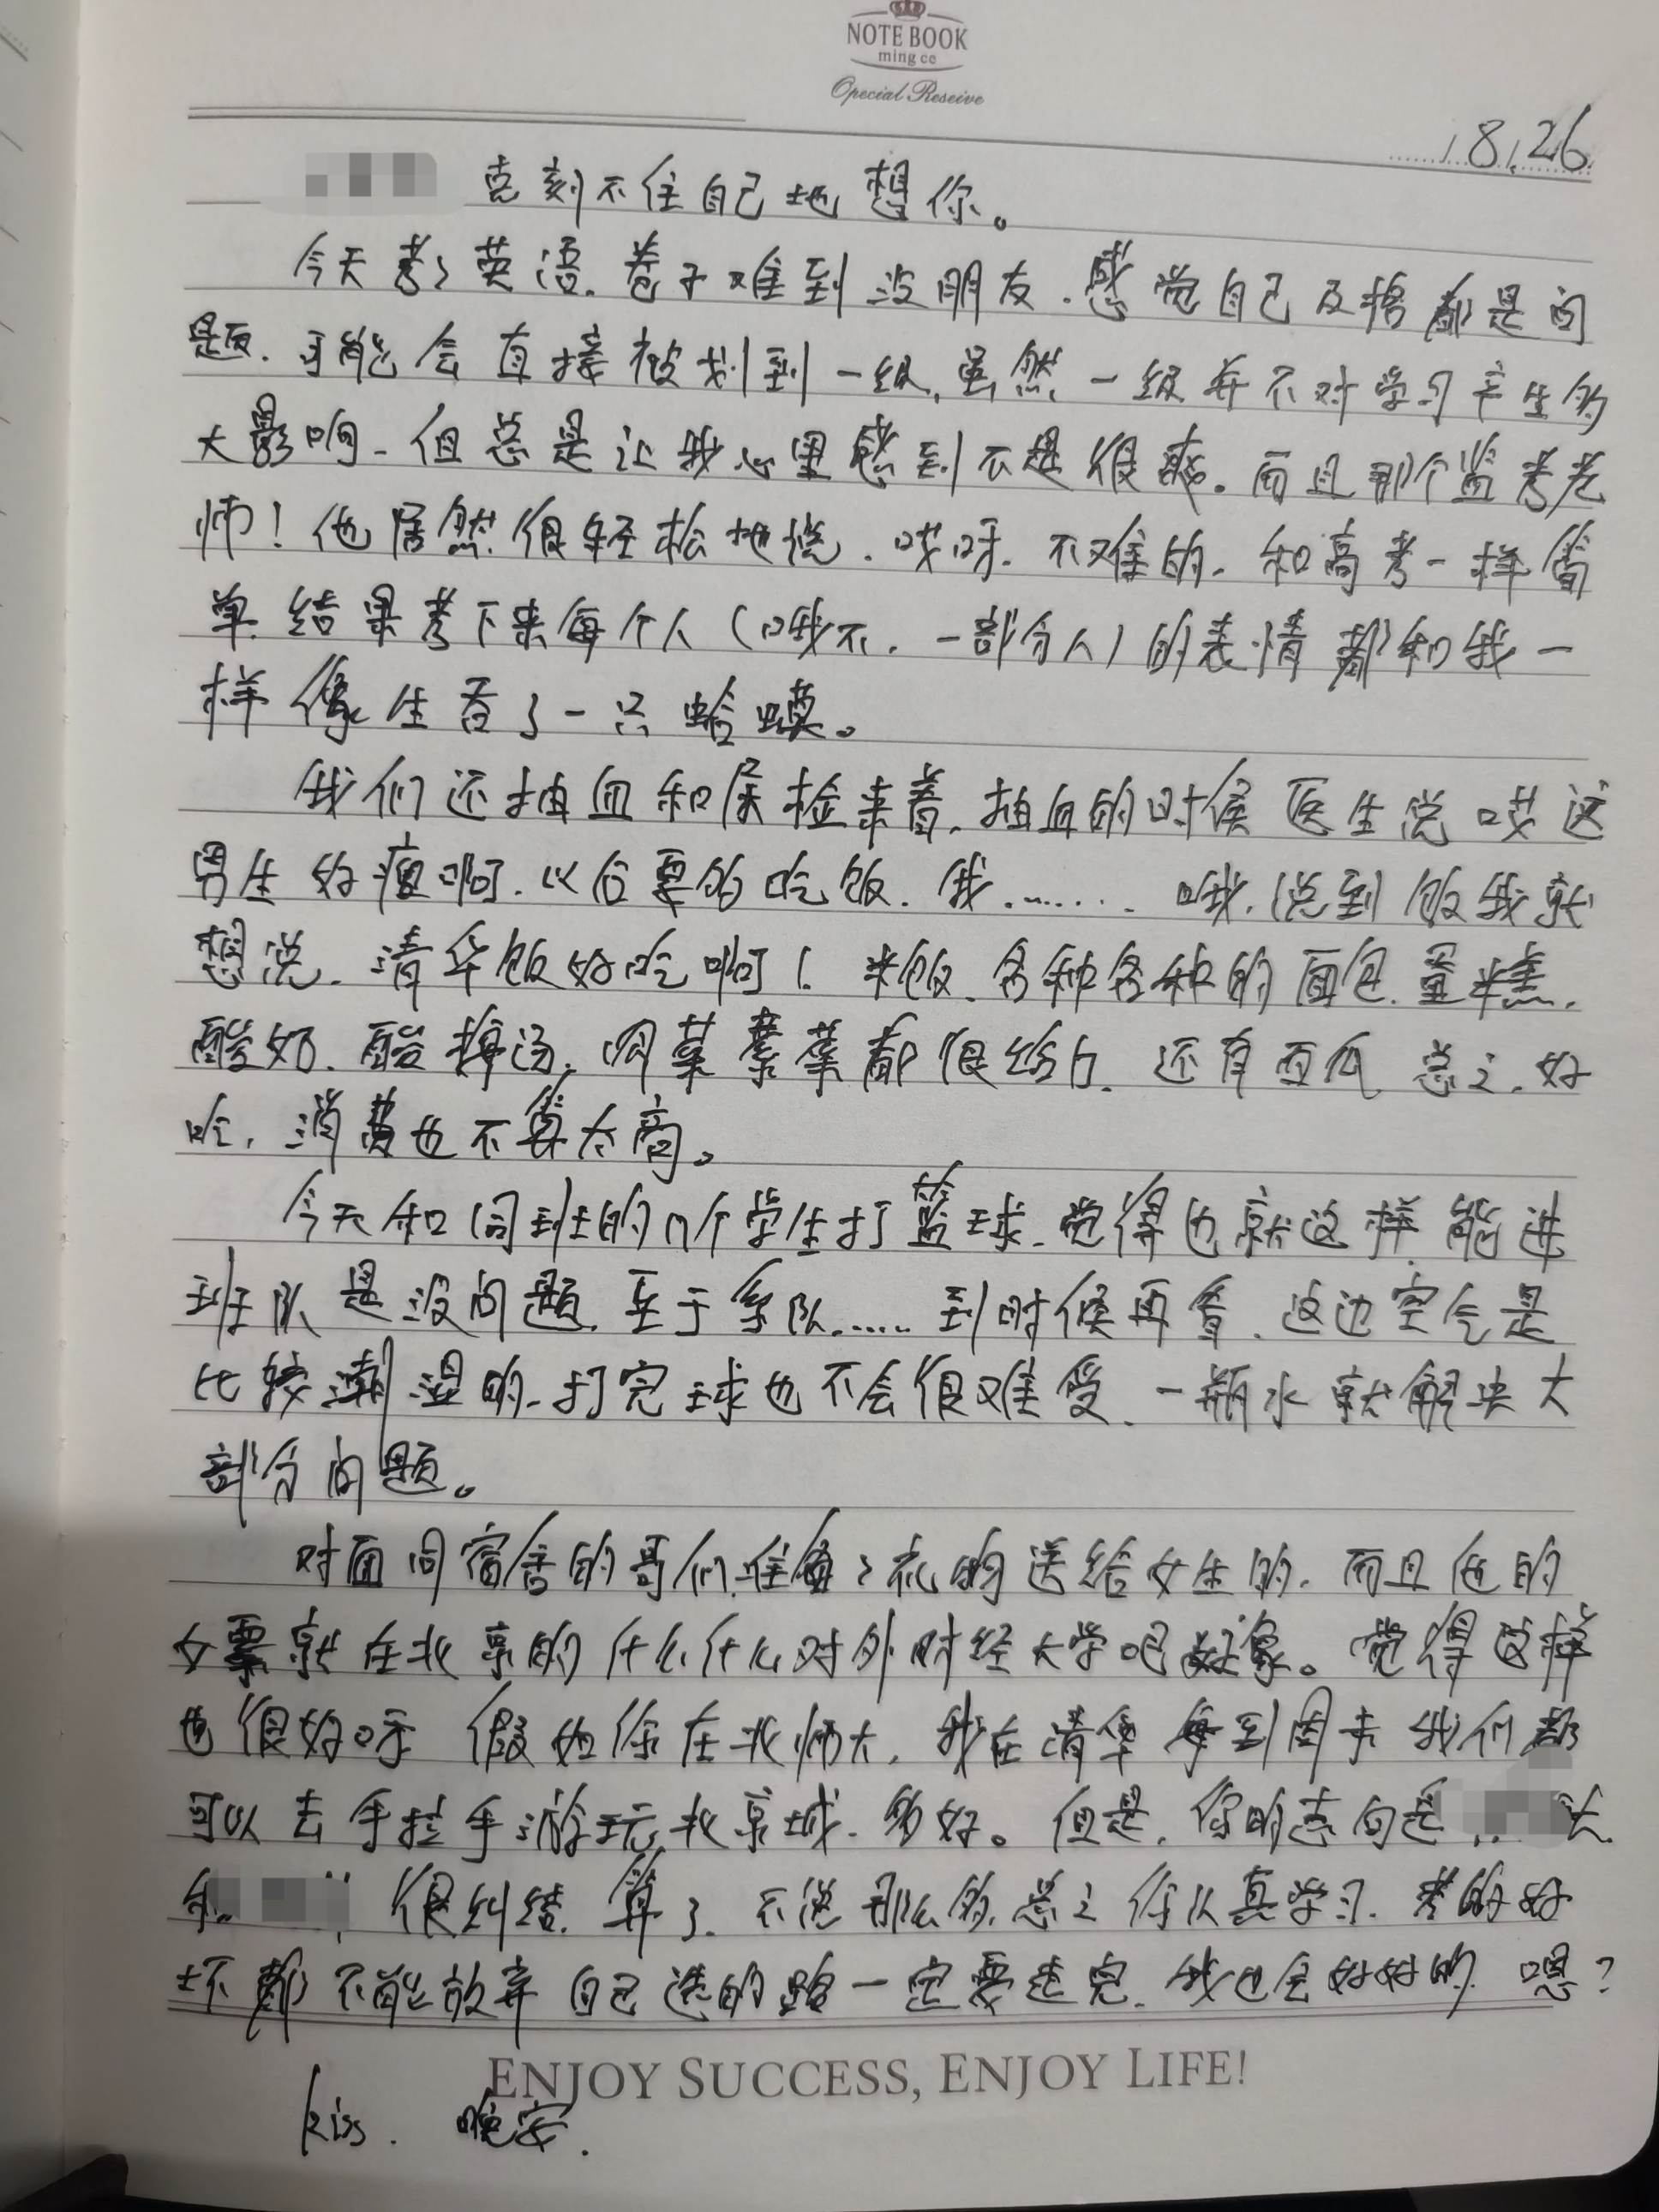 NOTE BOOK
ming ce
Special Reseive
18.26
克刻不住自己地想你。
今天考了英语.卷子难到没朋友.感觉自己及格都是问
题.可能会直接被划到一级,虽然一级并不对学习产生多
大影响-但总是让我心里感到不是很爽。而且那个监考老
师!他居然很轻松地说.哎呀.不难的.和高考一样简
单.结果考下来每个人(哦不.一部分人)的表情都和我一
样像生吞了一只蛤蟆。
我们还抽血和尿检来着.抽血的时候医生说哎这
男生好瘦啊.以后要多吃饭.我........哦.说到饭我就
想说.清华饭好吃啊!米饭.各种各种的面包.蛋糕.
酸奶.酸梅汤.肉菜素菜都很给力.还有西瓜.总之.好
吃.消费也不算太高。
今天和同班的几个学生打篮球.觉得也就这样.能进
班队是没问题.至于系队......到时候再看.这边空气是
比较潮湿的.打完球也不会很难受.一瓶水就解决大
部分问题。
对面同宿舍的哥们准备了礼物送给女生的.而且他的
女票就在北京的什么什么对外财经大学吧好像。觉得这样
也很好呀 假如你在北师大.我在清华每到周末我们都
可以去手拉手游玩北京城.多好。但是.你的志向是 大
和 很纠结.算了.不说那么多.总之你认真学习.考的好
坏都不能放弃自己选的路一定要走完.我也会好好的.嗯?
ENJOY SUCCESS, ENJOY LIFE!
kiss. 晚安.